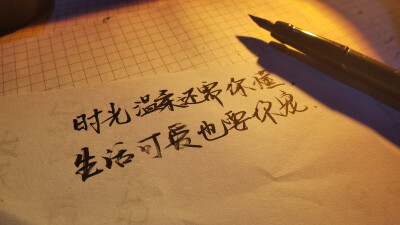 时光温柔还需你懂.
生活可贵也要你宠.